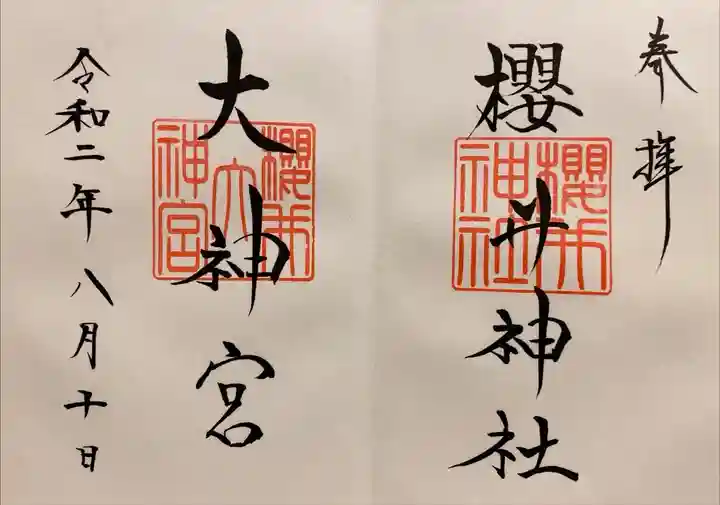 奉拝
櫻井神社
櫻井
神社
大神宮
櫻井
大
神宮
令和二年八月十日